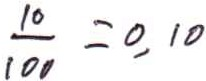 10/100 = 0,10